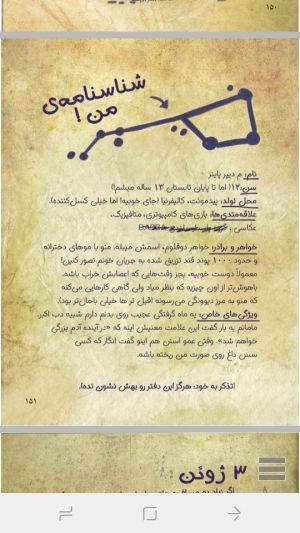 ۱۵۰
شناسنامه‌ی
من !
نام: م دیپر پاینز
سن: ۱۲! اما تا پایان تابستان ۱۳ ساله میشم!)
محل تولد: پیدمونت، کالیفرنیا (جای خوبیه! اما خیلی کسل‌کننده).
علاقه‌مندی‌ها: بازی‌های کامپیوتری، متافیزیک،
عکاسی ،
خواهر و برادر: خواهر دوقلوم، اسمش میبله. منو با موهای دخترانه
و حدود ۱۰۰۰ پوند قند تزریق شده به جریان خونم تصور کنین!
معمولاً دوست خوبیه، بجز وقت‌هایی که اعصابش خراب باشه.
باهوش‌تر از اون چیزیه که بنظر میاد ولی گاهی کارهایی می‌کنه
که منو به مرز دیوونگی می‌رسونه (قبل تر ها خیلی باحال‌تر بود).
ویژگی‌های خاص: یه ماه گرفتگی عجیب روی بدنم دارم شبیه دب اکبر.
مامانم یه بار گفت این علامت معنیش اینه که «در آینده آدم بزرگی
خواهم شد». وقتی عمو استن هم اینو گفت انگار که کسی
سس داغ روی صورت من ریخته باشه.
(تذکر به خود: هرگز این دفتر رو بهش نشون نده!).
۱۵۱
۳ ژوئن